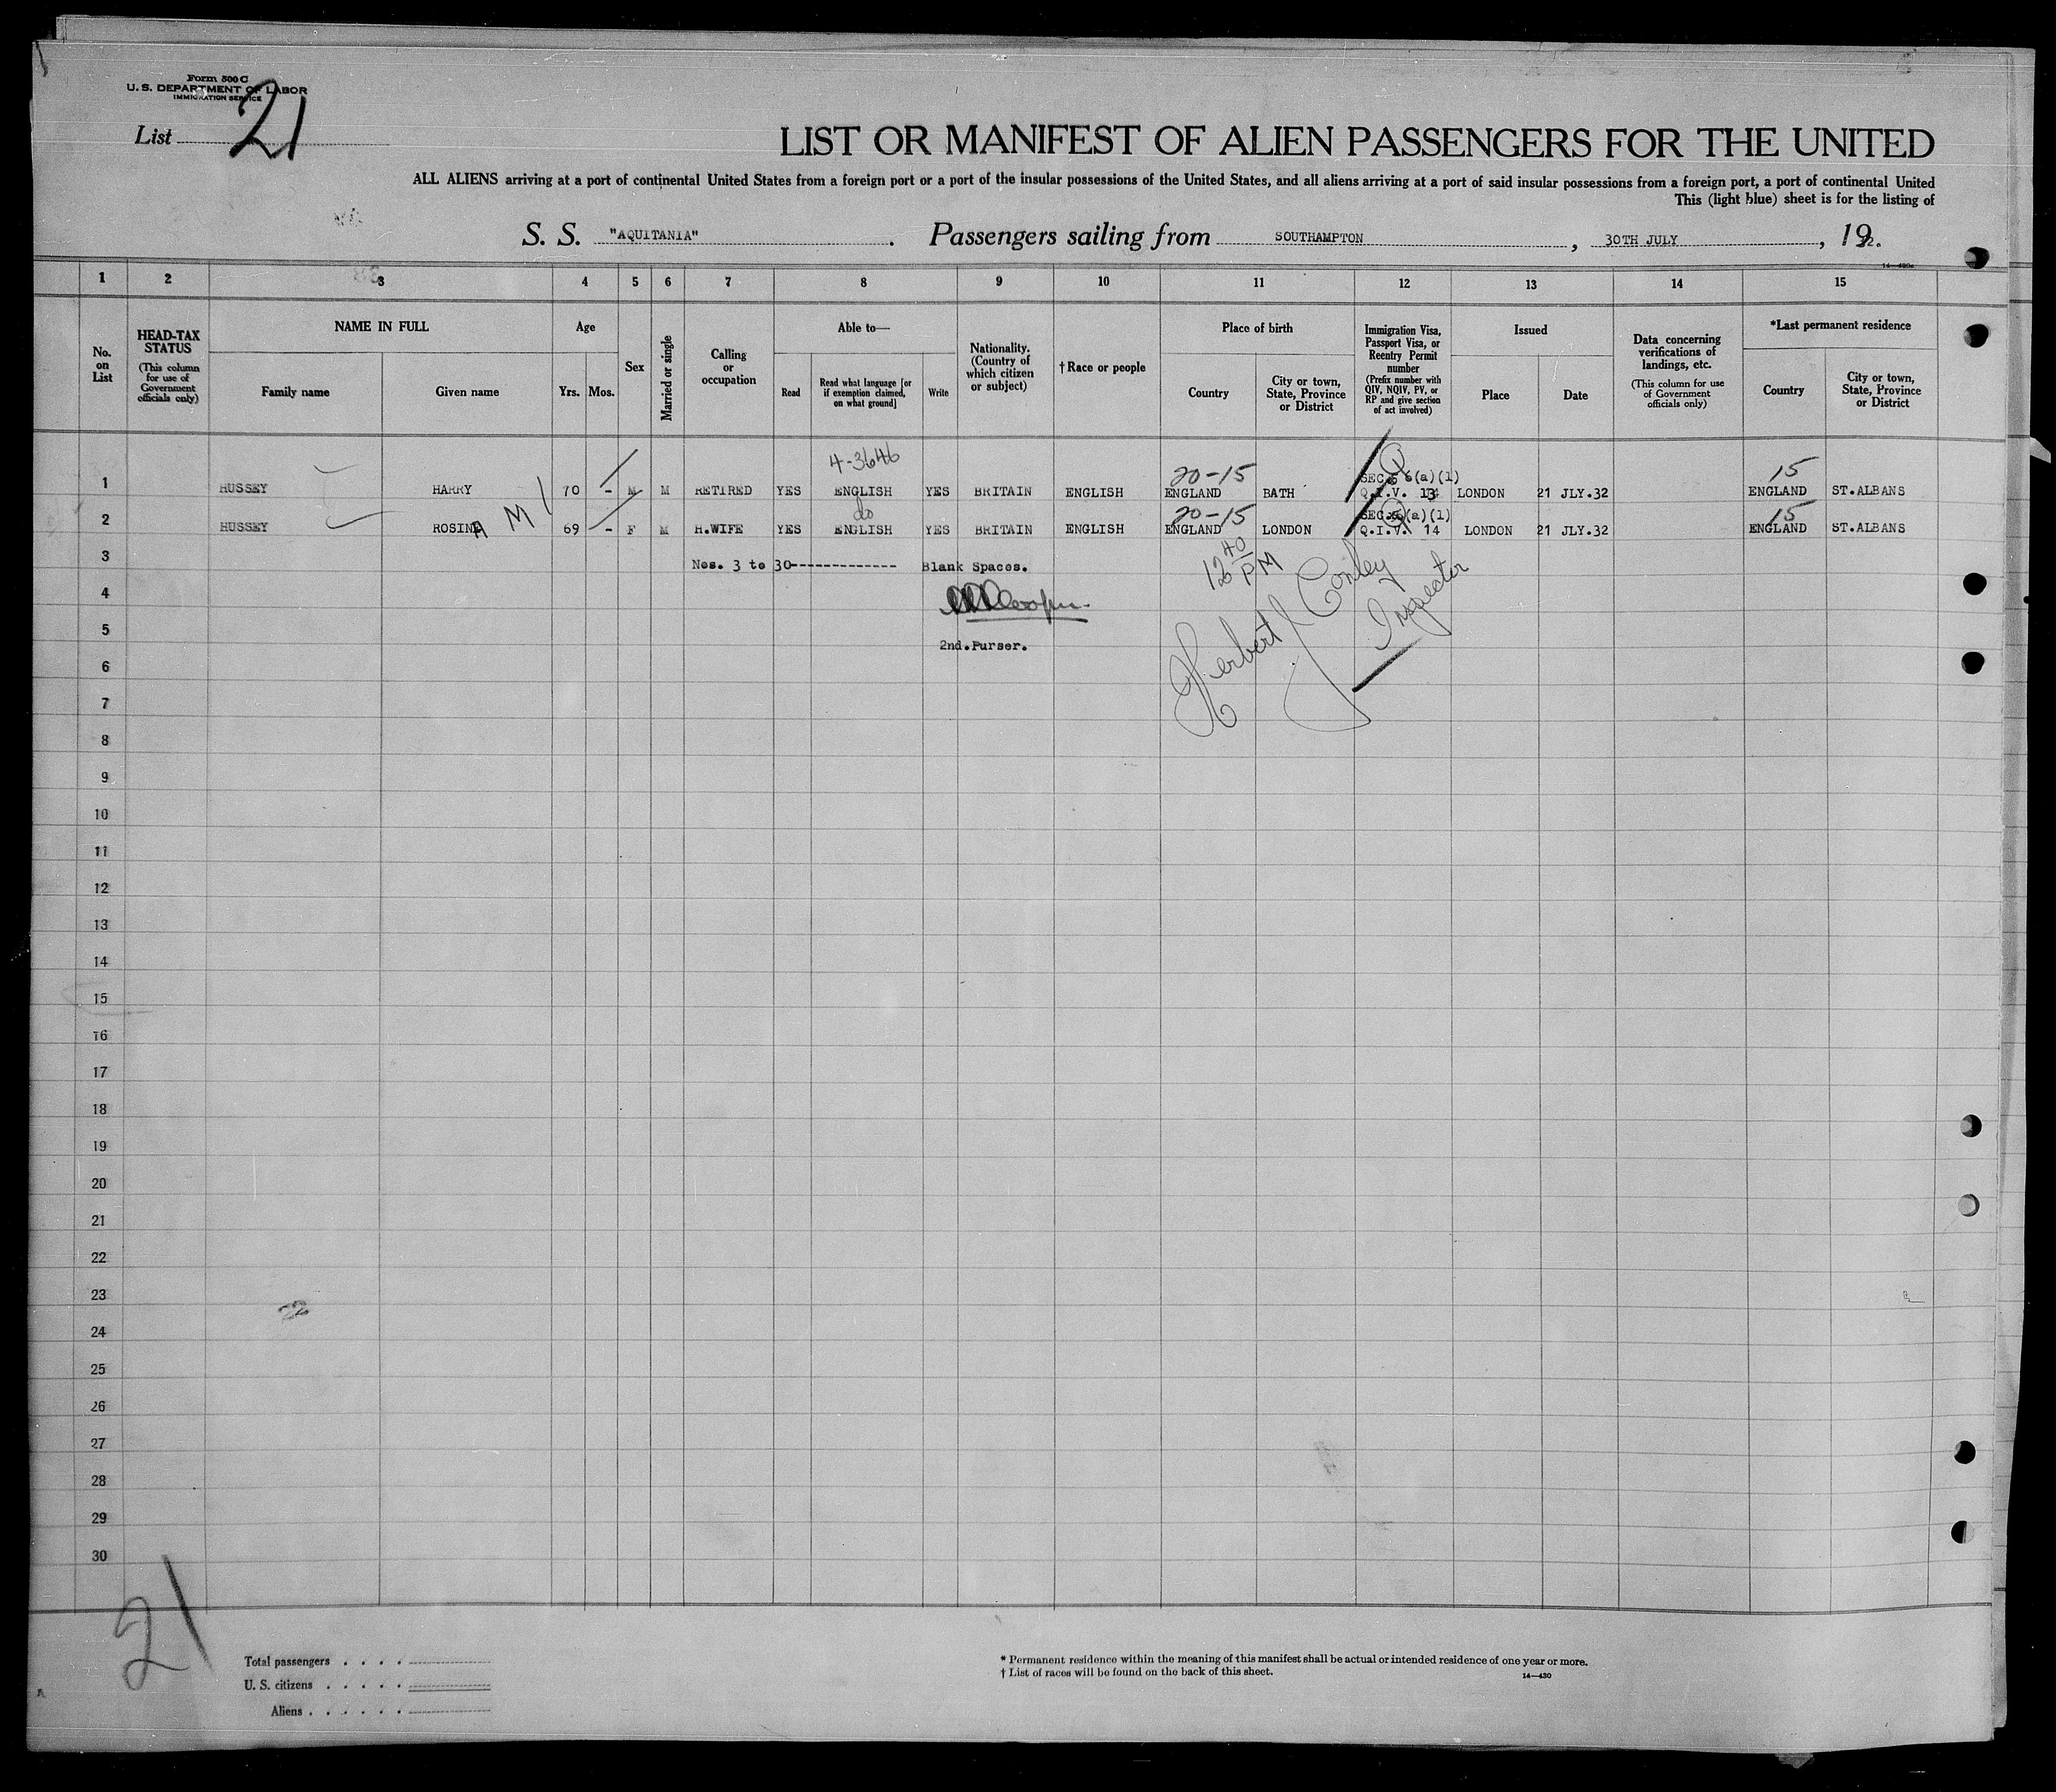 Form 500 C
U. S. DEPARTMENT OF LABOR
IMMIGRATION SERVICE
List 21
LIST OR MANIFEST OF ALIEN PASSENGERS FOR THE UNITED
ALL ALIENS arriving at a port of continental United States from a foreign port or a port of the insular possessions of the United States, and all aliens arriving at a port of said insular possessions from a foreign port, a port of continental United
This (light blue) sheet is for the listing of
S. S. "AQUITANIA". Passengers sailing from SOUTHAMPTON, 30TH JULY, 192.
14—430a
1 2 3 4 5 6 7 8 9 10 11 12 13 14 15
No. on List
HEAD-TAX STATUS (This column for use of Government officials only)
NAME IN FULL Family name Given name
Age Yrs. Mos.
Sex
Married or single
Calling or occupation
Able to— Read Read what language [or if exemption claimed, on what ground] Write
Nationality. (Country of which citizen or subject)
†Race or people
Place of birth Country City or town, State, Province or District
Immigration Visa, Passport Visa, or Reentry Permit number (Prefix number with QIV, NQIV, PV, or RP and give section of act involved)
Issued Place Date
Data concerning verifications of landings, etc. (This column for use of Government officials only)
*Last permanent residence Country City or town, State, Province or District
4-3646 20-15 SEC. 6(a)(1) 15
1 HUSSEY HARRY 70 - M M RETIRED YES ENGLISH YES BRITAIN ENGLISH ENGLAND BATH Q.I.V. 13 LONDON 21 JLY.32 ENGLAND ST.ALBANS
do 20-15 SEC. (a)(1) 15
2 HUSSEY ROSINA M 69 - F M H.WIFE YES ENGLISH YES BRITAIN ENGLISH ENGLAND LONDON Q.I.V. 14 LONDON 21 JLY.32 ENGLAND ST.ALBANS
3 Nos. 3 to 30------------- Blank Spaces. 12 40 PM
4
5 2nd.Purser. Herbert J Conley Inspector
6
7
8
9
10
11
12
13
14
15
16
17
18
19
20
21
22
23
22
24
25
26
27
28
29
30
21
Total passengers . . . .
U. S. citizens . . . . .
Aliens . . . . . .
* Permanent residence within the meaning of this manifest shall be actual or intended residence of one year or more.
† List of races will be found on the back of this sheet.
14—430